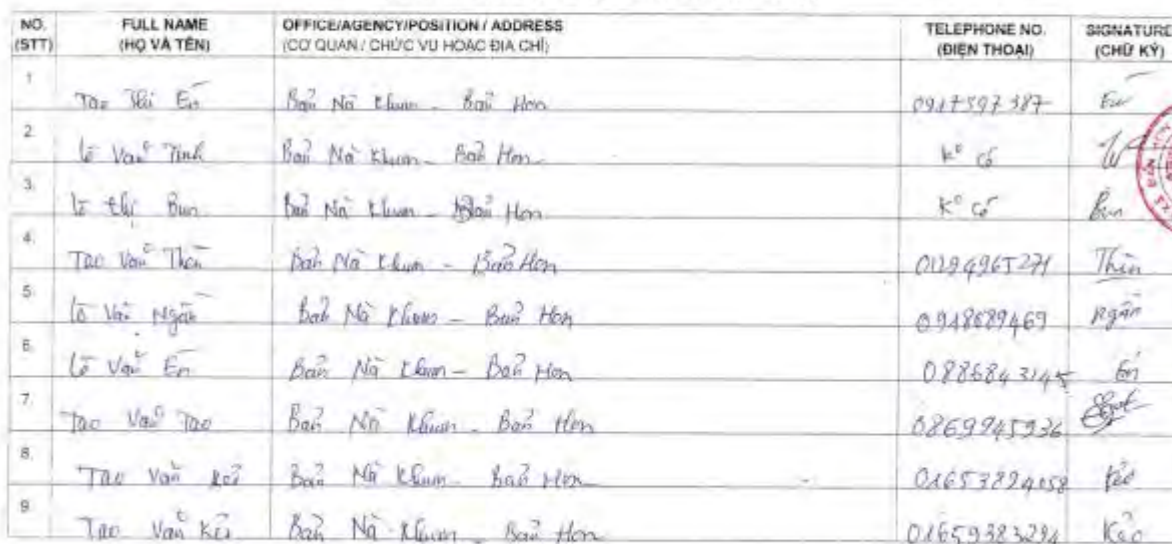 NO. FULL NAME OFFICE/AGENCY/POSITION / ADDRESS TELEPHONE NO. SIGNATURE
(STT) (HỌ VÀ TÊN) (CƠ QUAN / CHỨC VỤ HOẶC ĐỊA CHỈ) (ĐIỆN THOẠI) (CHỮ KÝ)
1 Tao Thị Én Bản Nà Khum - Bản Hon 0917597387
2. Lò Văn Tinh Bản Nà Khum - Bản Hon K° có
3. Lò Thị Bun Bản Nà Khum - Bản Hon K° có Bun
4. Tao Văn Bản Nà Khum - Bản Hon 01294965271 Thìn
5. Lò Văn Ngắn Bản Nà Khum - Bản Hon 0948689469 Ngắn
6. Lò Văn Én Bản Nà Khum - Bản Hon 0886843145 Én
7. Tao Văn Tao Bản Nà Khum - Bản Hon 0869945936
8. Tao Văn Bản Nà Khum - Bản Hon 01653894058
9 Tao Văn Bản Nà Khum - Bản Hon 01659383294 Kẻo